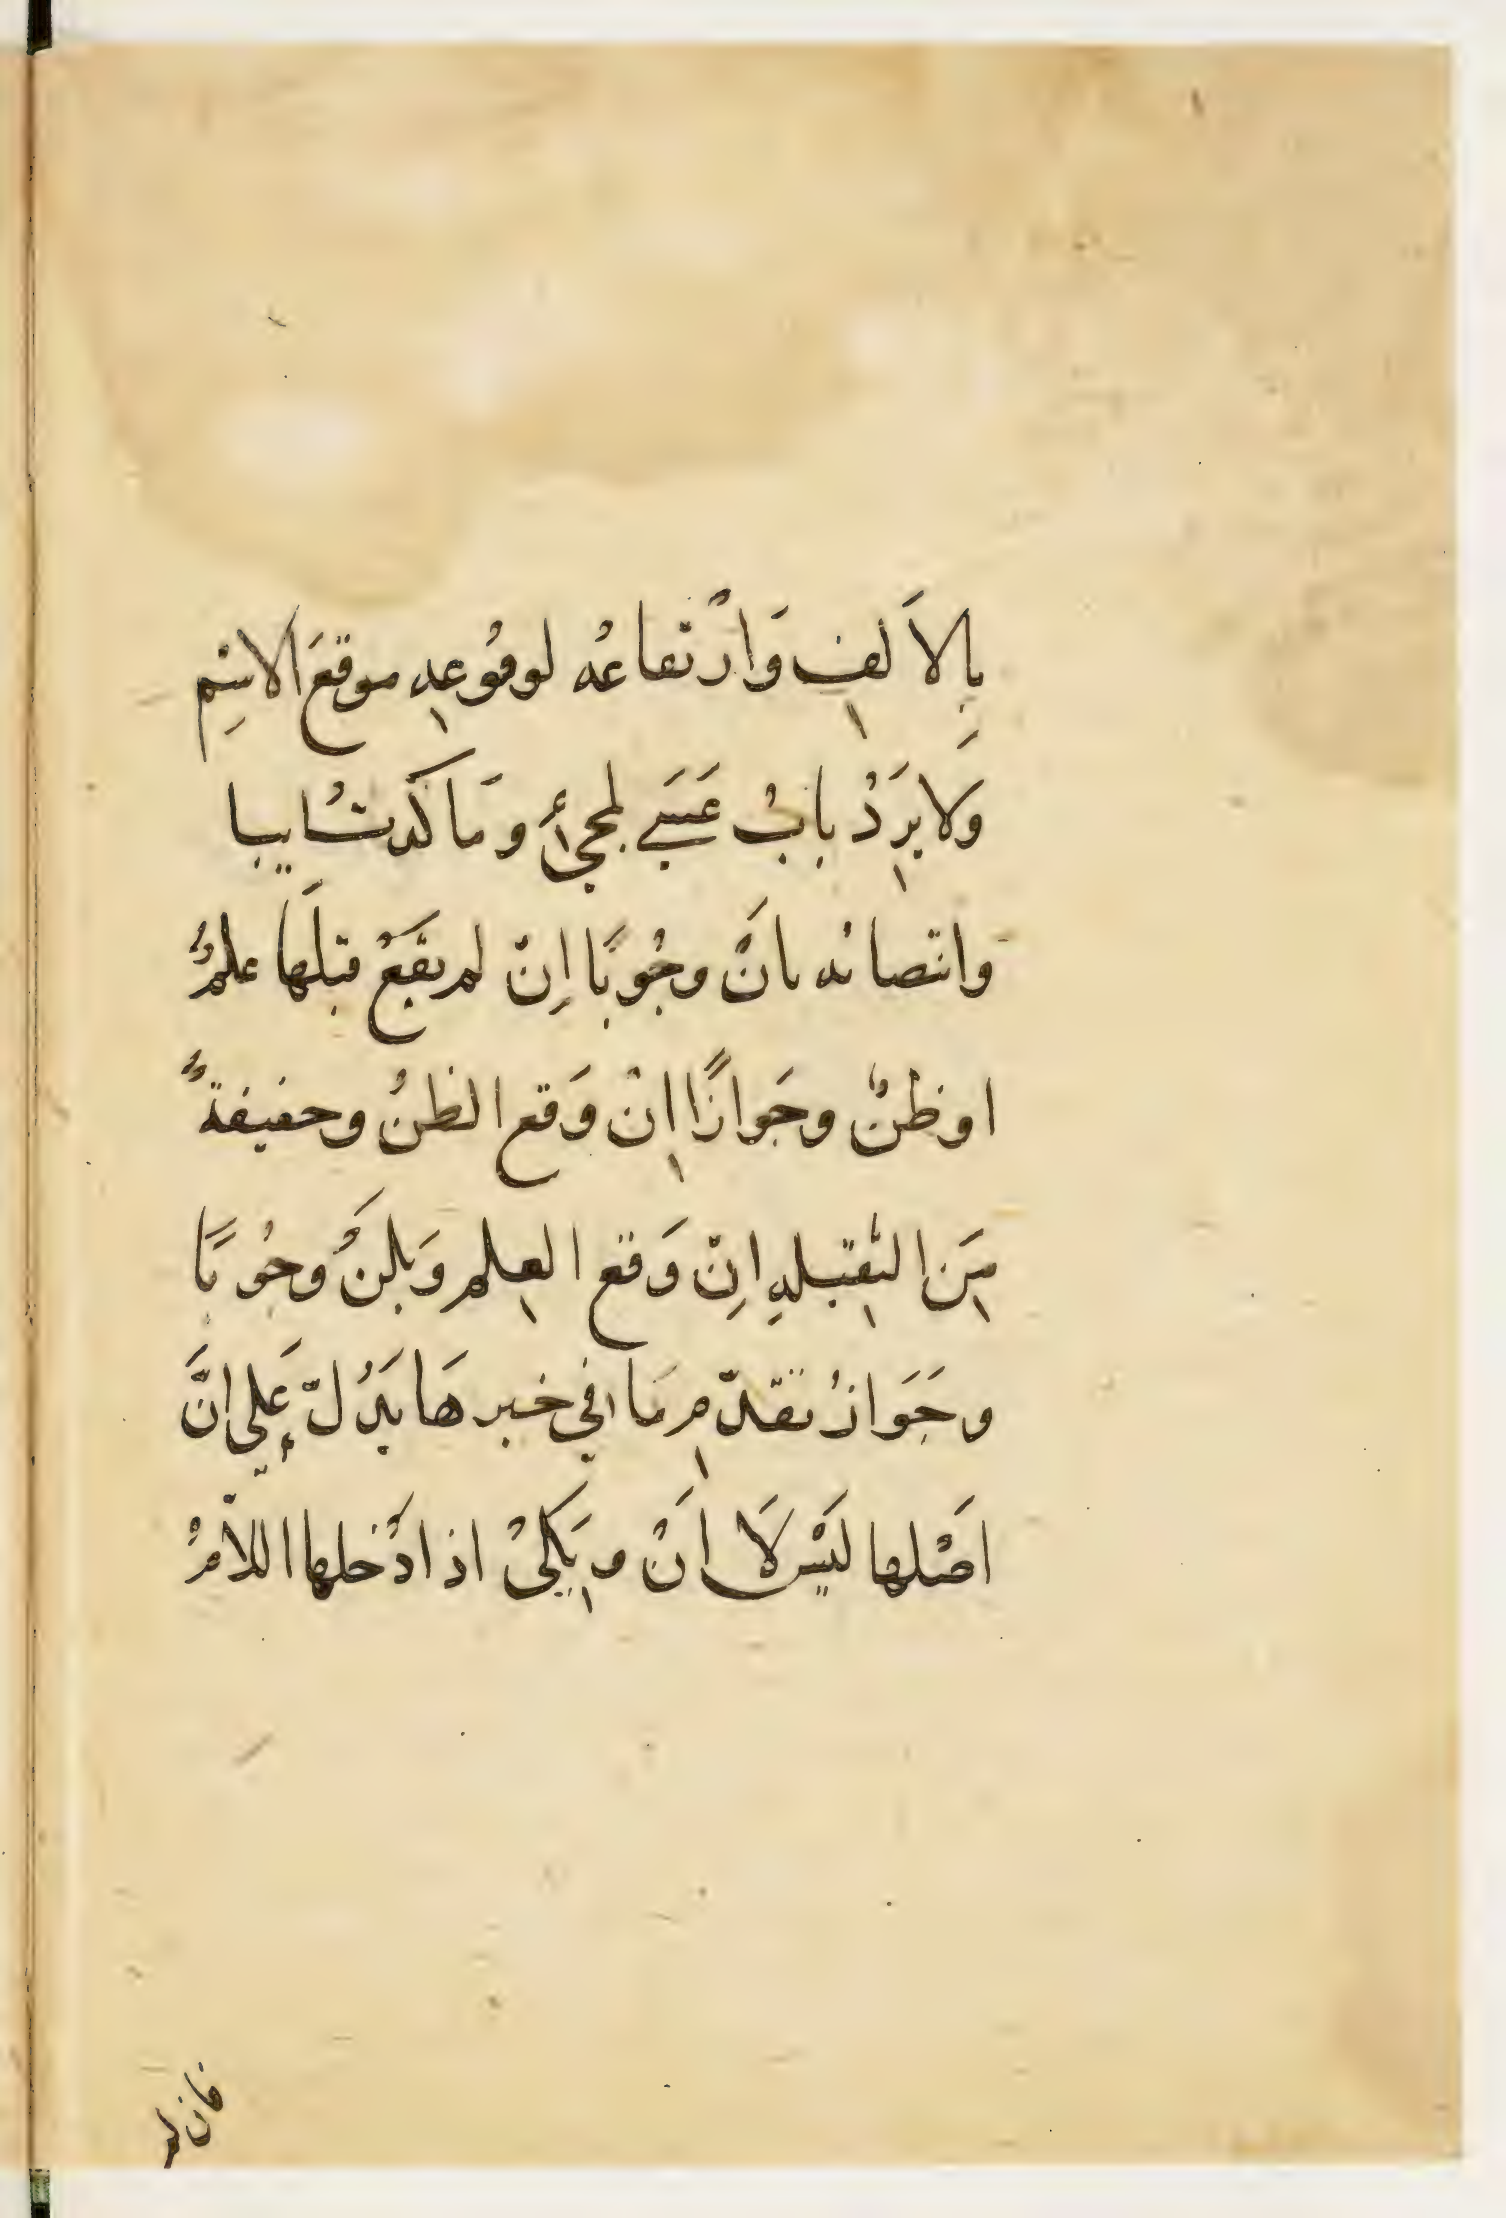 بِالاَلِفِ وَارْتفاعُه لوقُوعِهِ موقعَ الاسْم
وَلا يَرِدُ بابُ عَسَي لمجئ وَمَا كدتُ ايبا
وانتصابُه بانْ وجُوبًا اِنْ لم يقَعْ قبْلَها علمٌ
او ظنٌ وجَوازًا اِنْ وَقع الظنُ وخفيفةٌ
مِنَ الثقيلهِ اِنْ وَقع العِلم وَبلَنْ وجُوبًا
وجَوَازُ تقدّمِ مَا في خبرهَا يَدُلّ عَلي انَّ
اَصْلها لَيْس لاَ اَنْ وَبِكَيْ اذا دْخلها اللاّمُ
فان لم